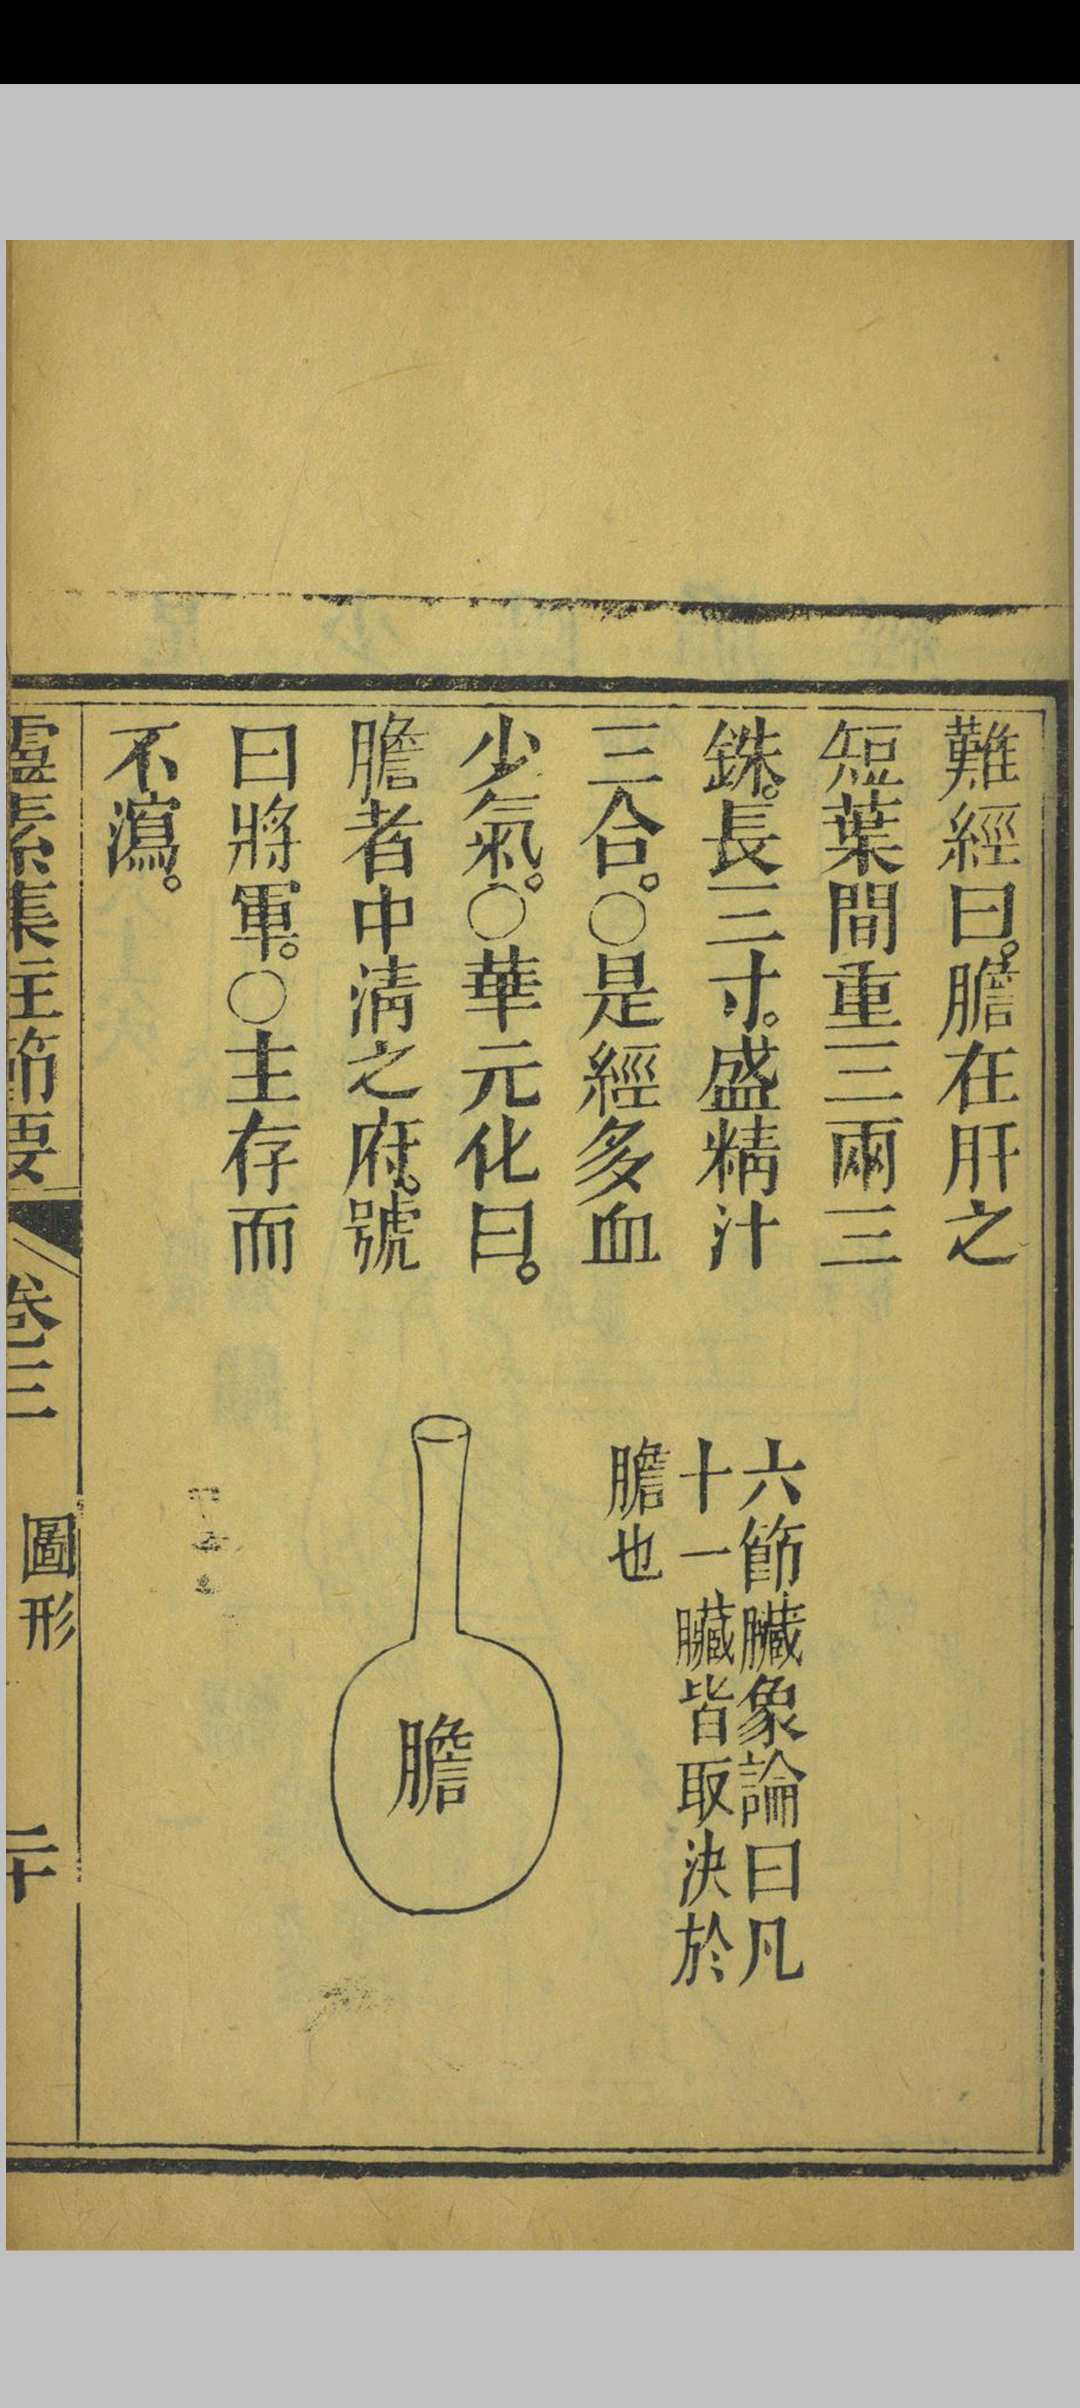 難經曰。膽在肝之
短葉間重三兩三
銖。長三寸。盛精汁
三合。○是經多血
少氣。○華元化曰。
膽者中淸之府。號
曰將軍。○主存而
不瀉。
六節臟象論曰凡
十一臟皆取決於
膽也
膽
靈素集註節要
卷三
圖形
二十